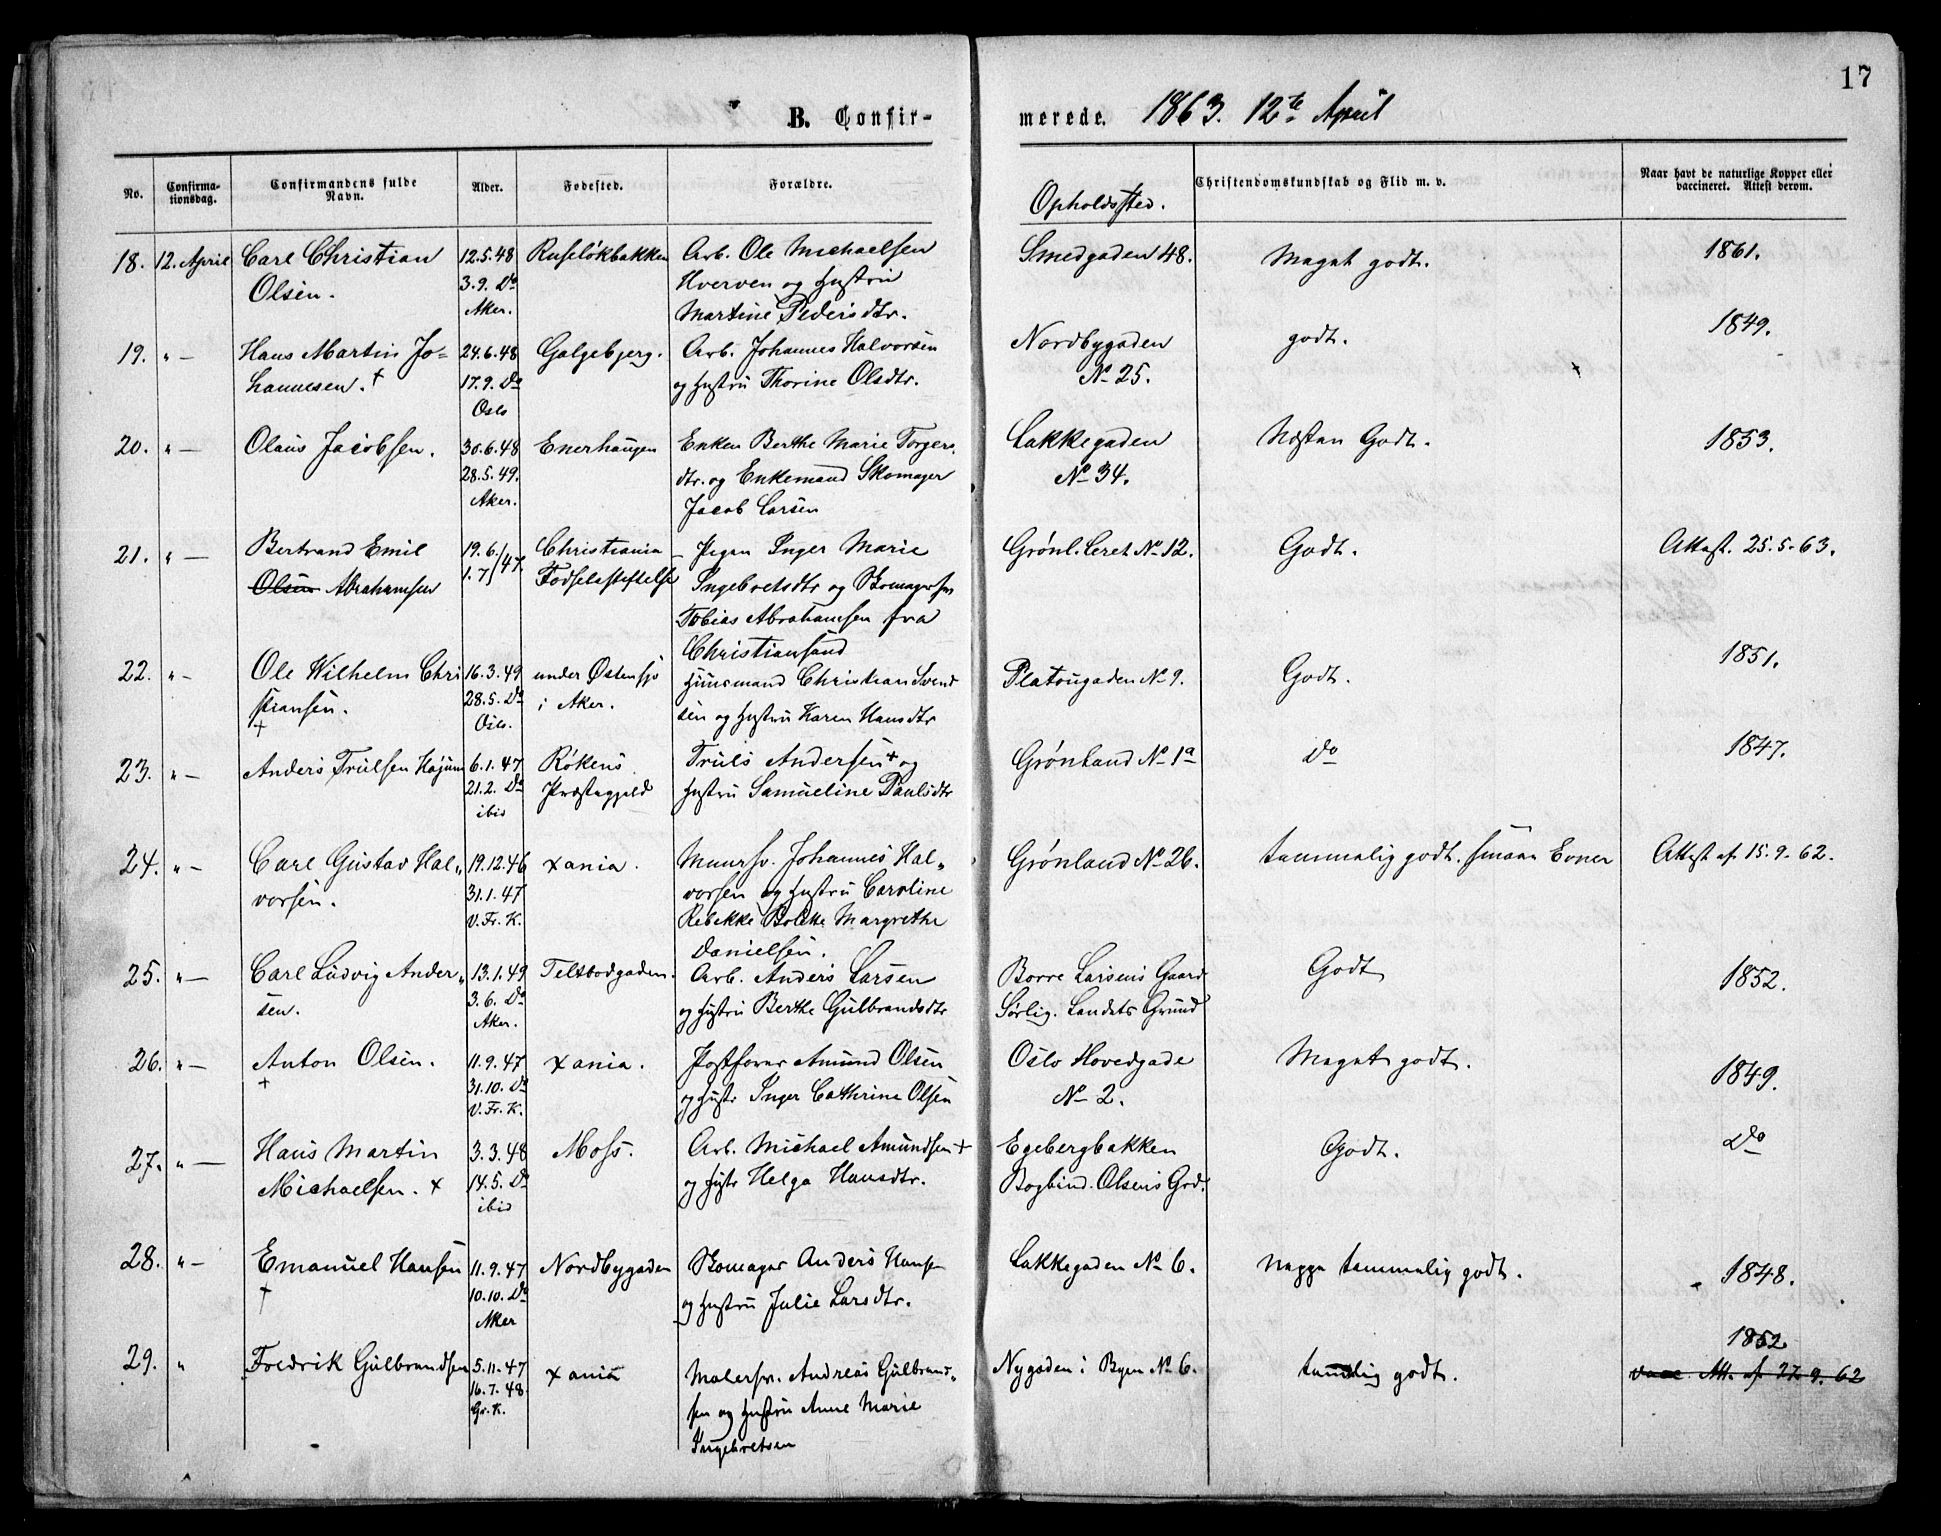 17
B. Confir-
merede. 1863. 12te April
No.
Confirma-
tionsdag.
Confirmandens fulde
Navn.
Alder.
Fødested.
Forældre.
Opholdssted.
Christendomskundskab og Flid m. v.
Naar havt de naturlige Kopper eller
vaccineret. Attest derom.
18. 12. April Carl Christian 12.5.48 Ruseløkbakken Arb. Ole Michaelsen Smedgaden 48. Meget godt. 1861.
Olsen. 3.9. Do Hverven og Hustru
Aker. Martine Pedersdtr.
19. " — Hans Martin Jo= 24.6.48 Galgebjerg. Arb. Johannes Halvorsen Nordbygaden godt. 1849.
hannesen. + 17.9. Do og Hustru Thorine Olsdtr. No 25.
Oslo
20. " — Olaus Jacobsen. 30.6.48 Enerhaugen Enken Berthe Marie Torgers Lakkegaden Næsten Godt. 1853.
28.5.49. dtr. og Enkemand Skomager No 34.
Aker. Jacob Larsen
21. " — Bertrand Emil 19.6. Christiania Pigen Inger Marie Grønl. Leret No 12. Godt. Attest. 25.5.63.
Olsen Abrahamsen 1.7 /47. Fødselsstiftelse Ingebretsdtr og Skomagersv
Tobias Abrahamsen fra
Christiansand
22. " — Ole Wilhelm Chri 16.3.49 under Østensjø Huusmand Christian Svend Platougaden No 9. Godt. 1851.
stiansen. 28.5. Do i Aker. sen og Hustru Karen Hansdtr
+ Oslo.
23. " — Anders Trulsen Højum 6.1.47 Røkens Truls Andersen + og Grønland No 1a Do 1847.
21.2. Do Præstegjeld Hustru Samueline Paulsdtr
ibid
24. " — Carl Gustav Hal„ 19.12.46 Xania. Muursv. Johannes Hal„ Grønland No 26. temmelig godt. smaae Evner Attest af 15.9.62.
vorsen. 31.1.47 vorsen og Hustru Caroline
V. Fr. K. Rebekke Bolette Margrethe
Danielsen.
25. " — Carl Ludvig Ander„ 13.1.49 Teltbodgaden. Arb. Anders Larsen Borre Larsens Gaard Godt 1852.
sen. 3.6. Do og Hustru Berthe Gulbrandsdtr Sørlig. Landets Grund
Aker.
26. " — Anton Olsen. 11.9.47 Xania. Postfører Amund Olsen Oslo Hovedgade Meget godt. 1849.
+ 31.10. Do og Hustr Inger Cathrine Olsen No 2.
V. Fr. K.
27. " — Hans Martin 3.3.48 Moss. Arb. Michael Amundsen + Egebergbakken Godt. Do
Michaelsen. + 14.5. Do og Hustr Helga Hansdtr. Bogbind. Olsens Grd.
ibid
28. " — Emanuel Hansen 11.9.47 Nordbygaden Skomager Anders Hansen Lakkegaden No 6. neppe temmelig godt. 1848.
+ 10.10. Do og Hustru Julie Larsdtr.
Aker
29. " Fredrik Gulbrandsen 5.11.47 Xania Malersv. Andreas Gulbrand„ Nygaden i Byen No 6. temlig godt. 1852
16.7.48. sen og Hustru Anne Marie vacc. Att. af 27.9.62
Gr. K. Ingebretsen